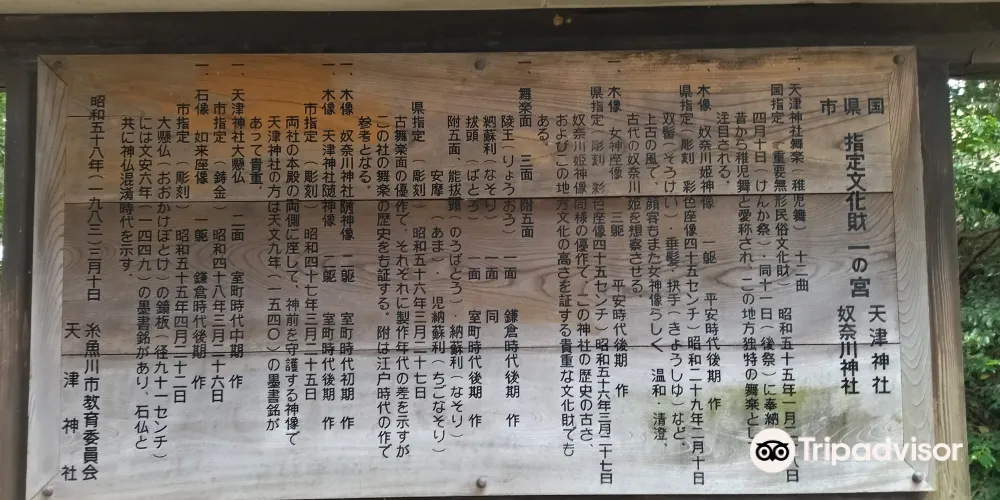 国
県 指定文化財 一の宮 天津神社
市 奴奈川神社
一、天津神社舞楽（稚児舞） 十二曲
国指定（重要無形民俗文化財） 昭和五十五年一月二十八日
四月十日（けんか祭）・同十一日（後祭）に奉納
昔から稚児舞と愛称され、この地方独特の舞楽とし
注目される。
一、木像 奴奈川姫神像 一軀 平安時代後期 作
県指定（彫刻）彩色座像四十五センチ）昭和二十九年二月十日
双髻（そうけい）・垂髪・拱手（きょうしゅ）など、
上古の風で、顔容もまた女神像らしく、温和・清澄、
古代の奴奈川姫を想察させる。
一、木像 女神座像 三軀 平安時代後期 作
県指定（彫刻）彩色座像四十五センチ）昭和五十六年三月二十七日
奴奈川姫神像同様の優作で、この神社の歴史の古さ
およびこの地方文化の高さを証する貴重な文化財でも
ある。
一、舞楽面 三面 附五面
陵王（りょうおう） 一面 鎌倉時代後期 作
納蘇利（なそり） 一面 同
抜頭（ばとう） 一面 室町時代後期 作
附五面、能抜頭（のうばとう）・納蘇利（なそり）
安摩（あま）・児納蘇利（ちごなそり）
県指定（彫刻） 昭和五十六年三月二十七日
古舞楽面の優作で、それぞれに製作年代の差を示すが
この社の舞楽の歴史をも証する。附は江戸時代の作で
参考となる。
一、木像 奴奈川神社随神像 二軀 室町時代初期 作
一、木像 天津神社随神像 二軀 室町時代後期 作
市指定（彫刻） 昭和四十七年三月二十五日
両社の本殿の両側に座して、神前を守護する神像で
天津神社の方は天文九年（一五四〇）の墨書銘が
あって貴重。
一、天津神社大懸仏 二面 室町時代中期 作
市指定（鋳金） 昭和四十八年三月二十六日
一、石像 如来座像 一軀 鎌倉時代後期 作
市指定（彫刻） 昭和五十五年四月二十二日
大懸仏（おおかけぼとけ）の鏡板（径九十一センチ）
には文安六年（一四四九）の墨書銘があり、石仏と
共に神仏混淆時代を示す。
昭和五十八年（一九八三）三月十日 糸魚川市教育委員会
天津神社
Tripadvisor